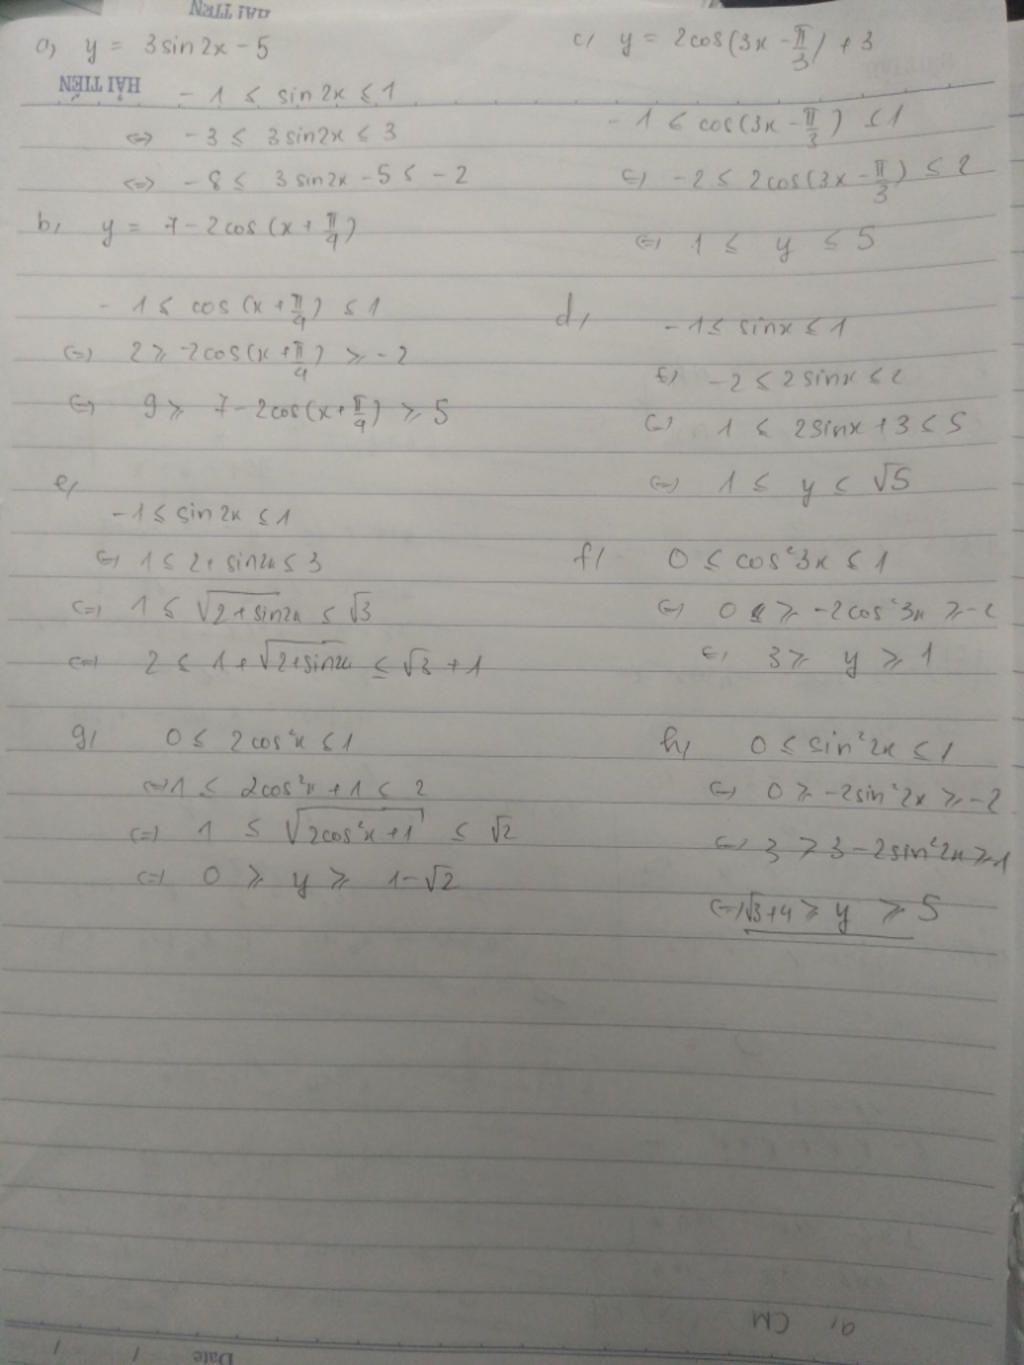 HẢI TIẾN
a, y = 3sin2x - 5
HẢI TIẾN
-1 ≤ sin2x ≤ 1
<=> -3 ≤ 3sin2x ≤ 3
<=> -8 ≤ 3sin2x - 5 ≤ -2
b, y = 7 - 2cos(x + π/4)
-1 ≤ cos(x + π/4) ≤ 1
<=> 2 ≥ -2cos(x + π/4) ≥ -2
<=> 9 ≥ 7 - 2cos(x + π/4) ≥ 5
c, y = 2cos(3x - π/3) + 3
-1 ≤ cos(3x - π/3) ≤ 1
<=> -2 ≤ 2cos(3x - π/3) ≤ 2
<=> 1 ≤ y ≤ 5
d, -1 ≤ sinx ≤ 1
<=> -2 ≤ 2sinx ≤ 2
<=> 1 ≤ 2sinx + 3 ≤ 5
<=> 1 ≤ y ≤ √5
e,
-1 ≤ sin2x ≤ 1
<=> 1 ≤ 2 + sin2x ≤ 3
<=> 1 ≤ √(2 + sin2x) ≤ √3
<=> 2 ≤ 1 + √(2 + sin2x) ≤ √3 + 1
f, 0 ≤ cos²3x ≤ 1
<=> 0 ≥ -2cos²3x ≥ -2
<=> 3 ≥ y ≥ 1
g, 0 ≤ 2cos²x ≤ 1
<=> 1 ≤ 2cos²x + 1 ≤ 2
<=> 1 ≤ √(2cos²x + 1) ≤ √2
<=> 0 ≥ y ≥ 1 - √2
h, 0 ≤ sin²2x ≤ 1
<=> 0 ≥ -2sin²2x ≥ -2
<=> 3 ≥ 3 - 2sin²2x ≥ 1
<=> √3 + 4 ≥ y ≥ 5
a, CM
Date / /